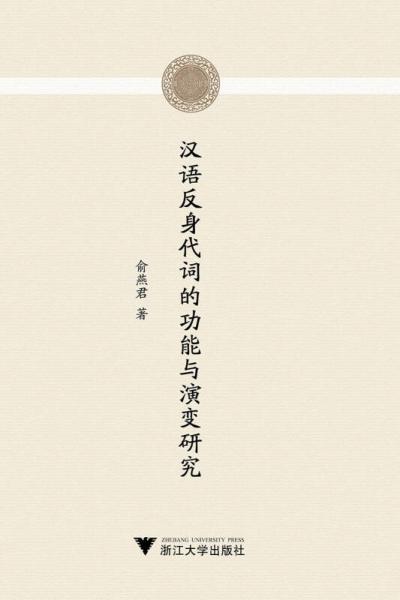 汉语反身代词的功能与演变研究
俞燕君 著
ZHEJIANG UNIVERSITY PRESS
浙江大学出版社